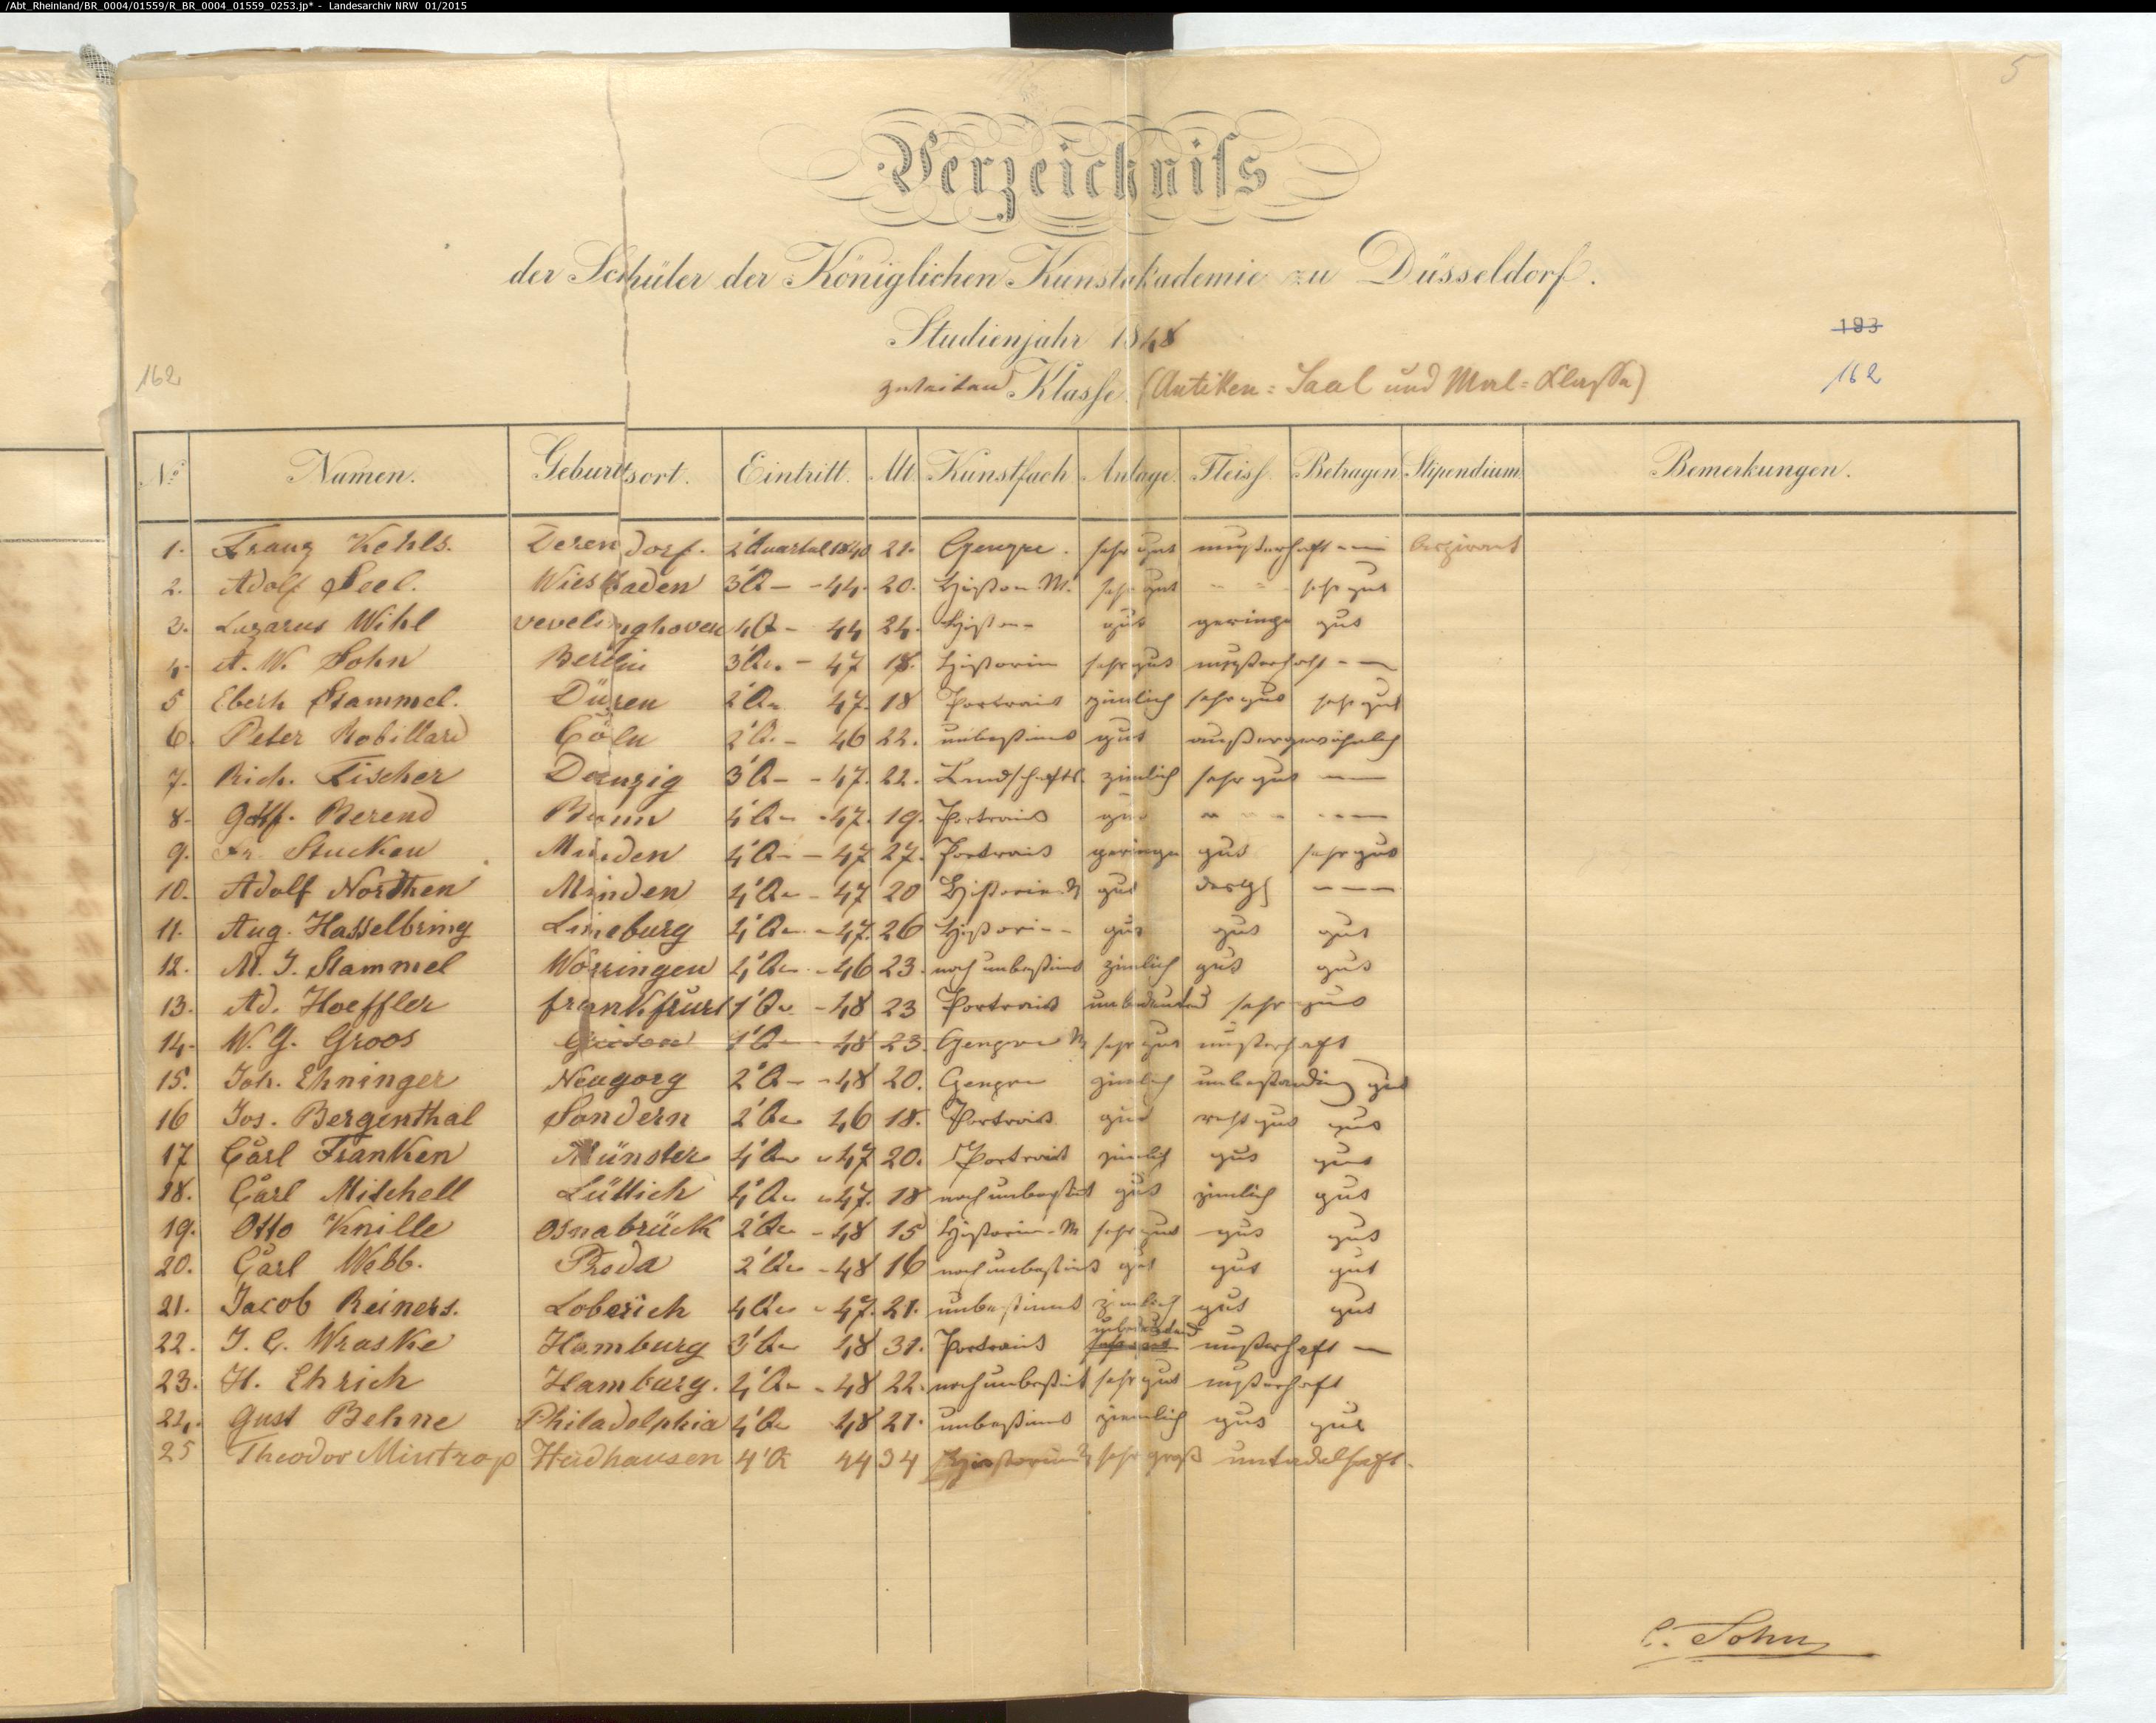 /Abt_Rheinland/BR_0004/01559/R_BR_0004_01559_0253.jp* - Landesarchiv NRW 01/2015
5
Verzeichniſs
der Schüler der Königlichen Kunstakademie zu Düsseldorf.
Studienjahr 1848
183
162
zweiten Klasse (Antiken = Saal und Mal = Klasse)
162
No. Namen. Geburtsort. Eintritt. Alt. Kunstfach Anlage. Fleiss. Betragen Stipendium Bemerkungen.
1. Franz Kehls. Derendorf. 2' Quartal 1840 21. Genre. sehr gut musterhaft - — Aspirant
2. Adolf Seel. Wiesbaden 3'Q - - 44. 20. Histor. M. sehr gut - - sehr gut
3. Lazarus Wihl Wevelinghoven 4Q - 44 24. Histor - gut geringe gut
4. A. W. Sohn Berlin 3'Qu. - 47 18. Historien sehr gut musterhaft - —
5 Eberh Stammel. Düren 2'Qu 47. 18 Portrait zimlich sehr gut sehr gut
6. Peter Robillard Cöln 2'Q. - 46 22. unbestimt gut außergewöhnlich
7. Rich. Fischer Danzig 3'Q - - 47. 22. Landschaftl. zimlich sehr gut — —
8. Gottf. Berend Bonn 4'Qu - 47. 19. Portrait gut " - - - - —
9. Fr. Stucken Minden 4'Q - - 47 27. Portrait geringe gut sehr gut
10. Adolf Northen Minden 4'Qu - 47 20 Historien M gut desgl — — —
11. Aug. Hasselbring Lüneburg 4'Qu - 47. 26 Histori - - gut gut gut
12. M. J. Stammel Worringen 4'Qu - 46 23. noch unbestimt zimlich gut gut
13. Ad. Hoeffler frankfurt 1'Qu - 48 23 Portrait unbedeutend sehr gut
14. W. G. Groos 1'Q - - 48 23. Genre M sehr gut musterhaft
15. Joh. Ehninger Neuyorg 2'Q - - 48 20. Genre zimlich unbestandig gut
16 Jos. Bergenthal Sondern 2'Qu 46 18. Portrait gut recht gut gut
17 Carl Franken Münster 4'Qu " 47 20. Portrait zimlich gut gut
18. Carl Mitchell Lüttich 4'Qu " 47. 18 noch unbestimt gut zimlich gut
19. Otto Knille Osnabrück 2'Qu - 48 15 Historien - M sehr gut gut gut
20. Carl Webb. Breda 2'Qu - 48 16 noch unbestimt gut gut gut
21. Jacob Reiners. Loberich 4Qu " 47. 21. unbestimt zimlich gut gut
22. J. C. Wraske Hamburg 3'Qu 48 31. Portrait unbedeutend musterhaft —
23. H. Ehrich Hamburg. 4'Qu - 48 22. noch unbestimt sehr gut musterhaft
24. Gust Behne Philadelphia 4'Qu 48 21. unbestimt ziemlich gut gut
25 Theodor Mintrop Heidhausen 4'Q 44 34 Historien M sehr groß untadelhaft.
C. Sohn